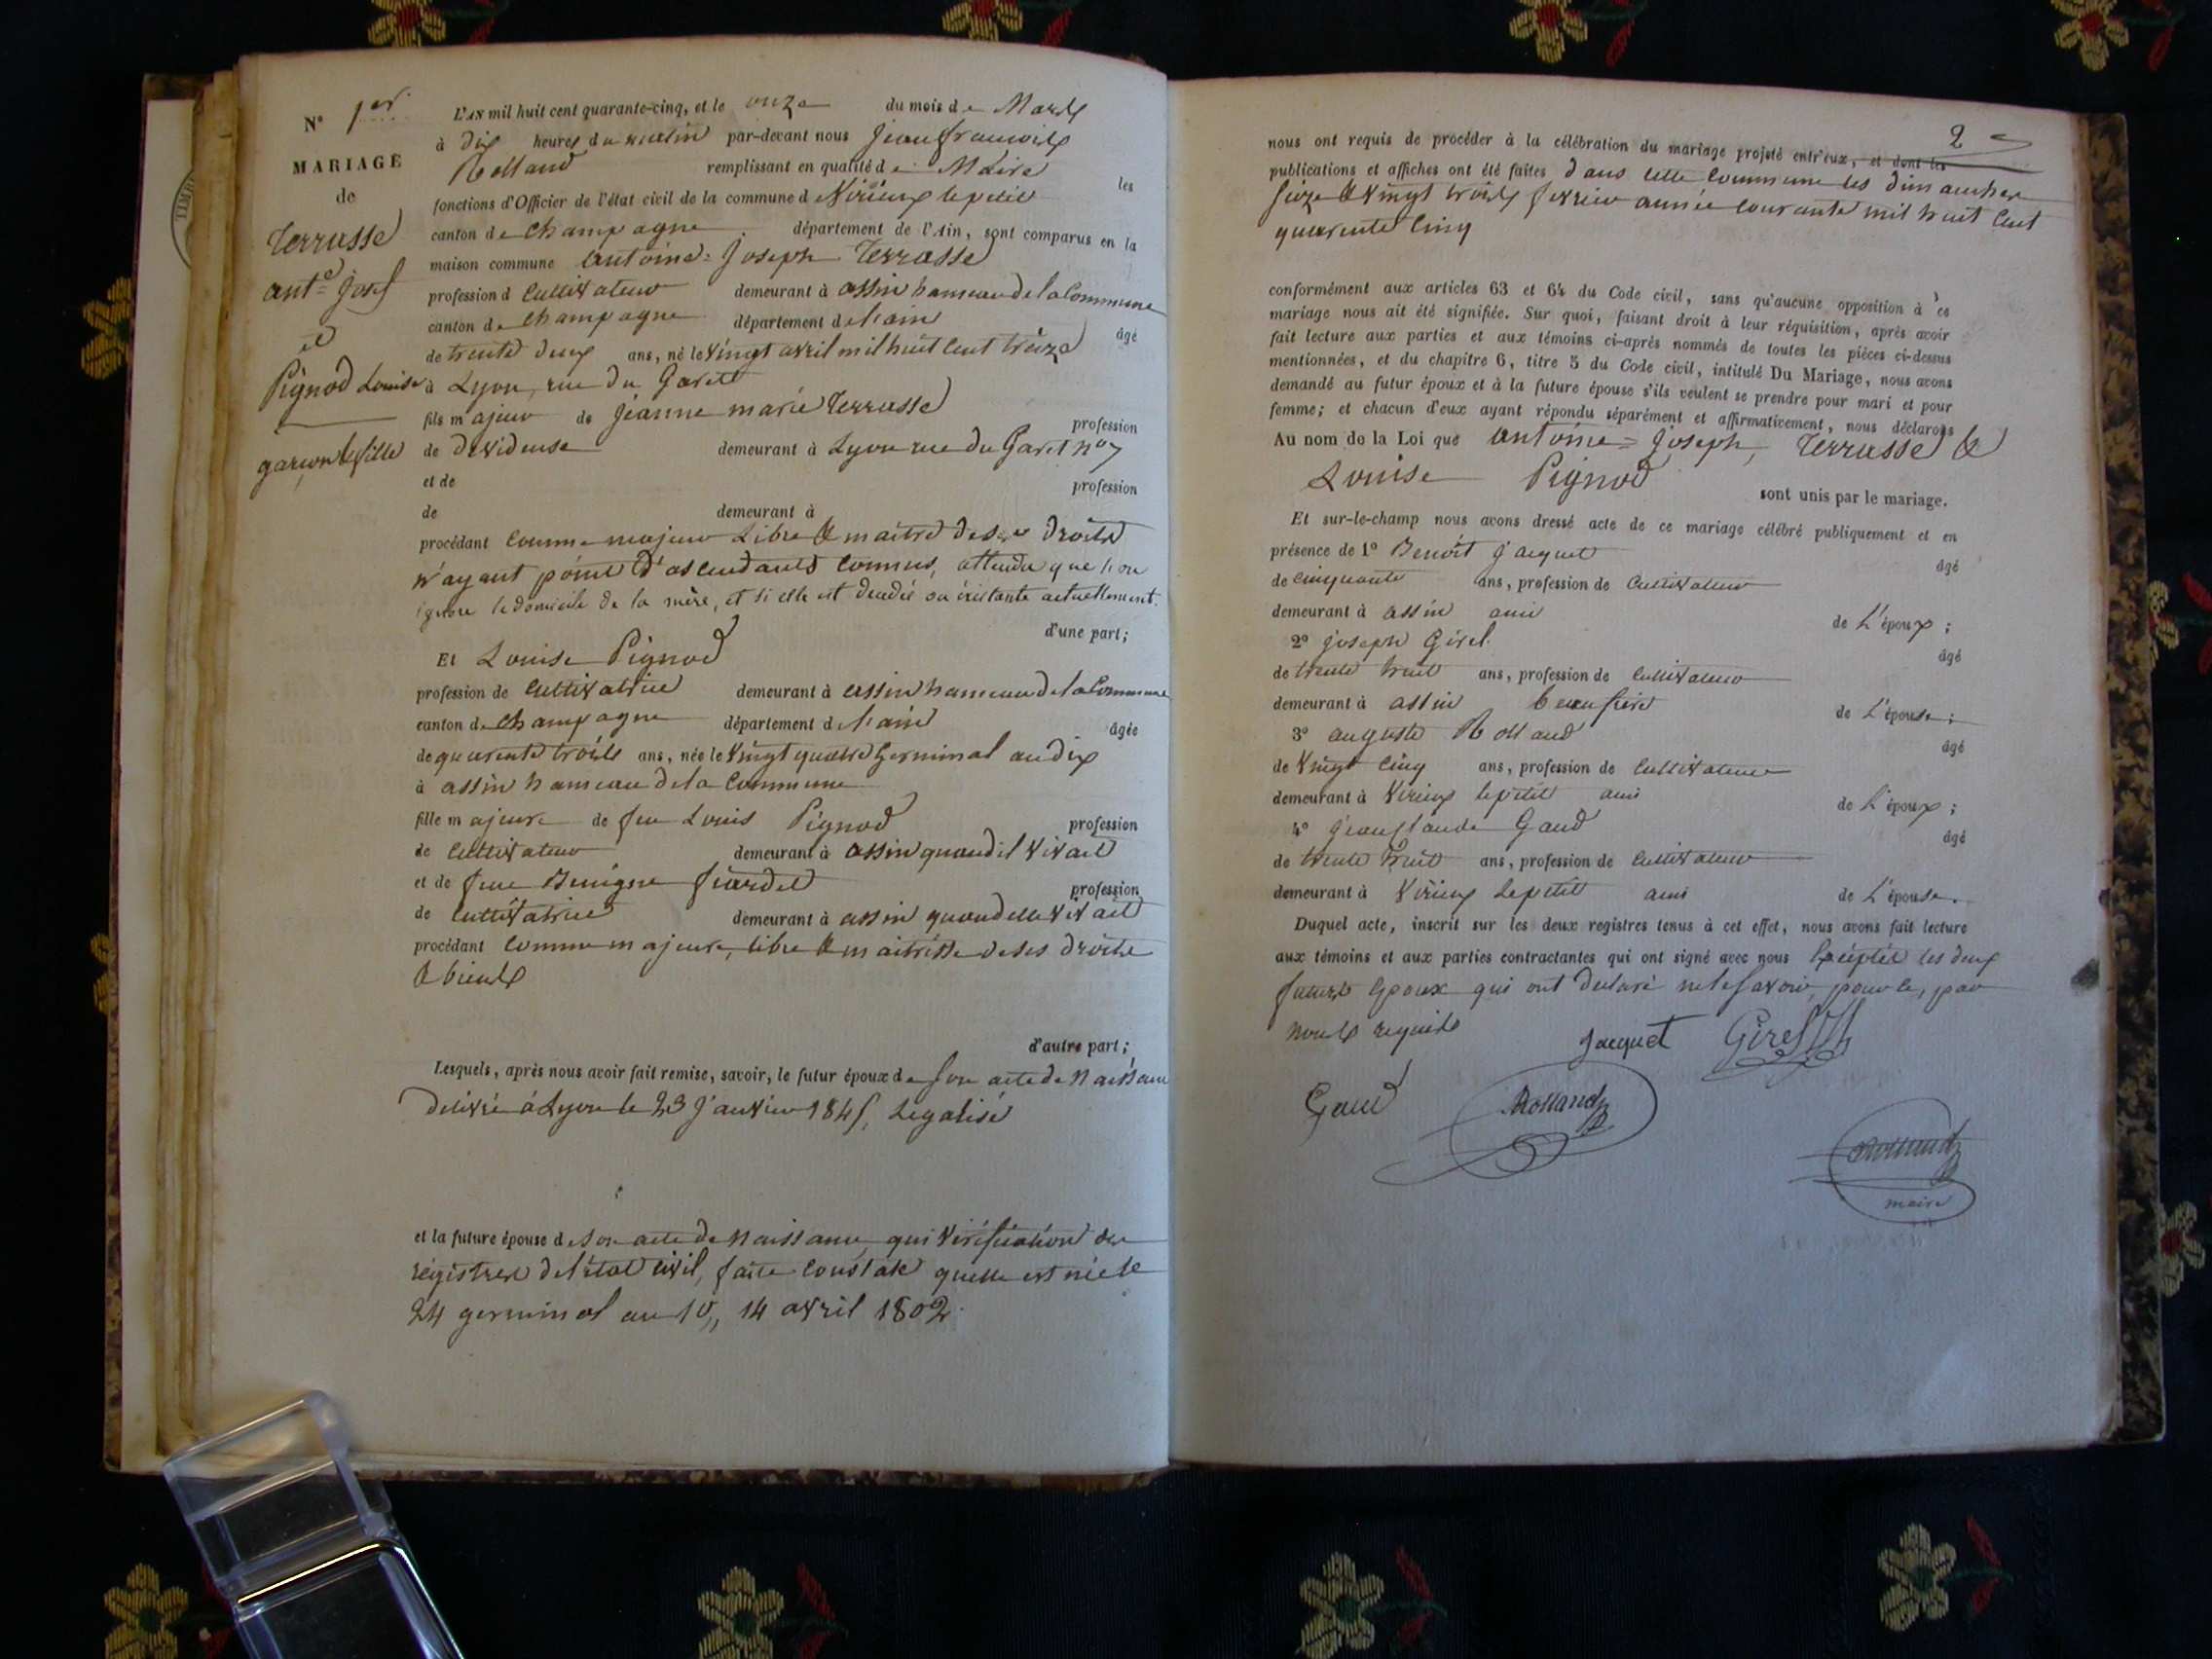 N° 1er
MARIAGE
de
Terrasse
ante Josef
et
Pignod Louise
garçon & fille
L'AN mil huit cent quarante-cinq, et le onze du mois de Mars
à dix heures du matin par-devant nous Jean françois
Rolland remplissant en qualité de Maire les
fonctions d'Officier de l'état civil de la commune d Virieux le petit
canton de Champagne département de l'Ain, sont comparus en la
maison commune Antoine=Joseph Terrasse
profession d Cultivateur demeurant à assin hameau de la Commune
canton de Champagne département de l'ain âgé
de trente deux ans, né le Vingt avril mil huit cent treize
à Lyon, rue du Garet
fils majeur de Jeanne marie Terrasse profession
de dévideuse demeurant à Lyon rue du Garet n° 7
et de profession
de demeurant à
procédant comme majeur Libre & maître de ses droits
n'ayant point d'ascendants connus, attendu que l'on
ignore le domicile de la mère, et si elle est décédée ou existante actuellement.
d'une part;
Et Louise Pignod
profession de Cultivatrice demeurant à assin hameau de la Commune
canton de Champagne département de l'ain âgée
de quarante trois ans, née le Vingt quatre Germinal an dix
à assin hameau de la Commune
fille majeure de feu Louis Pignod profession
de Cultivateur demeurant à assin quand il Vivait
et de feue Benigne profession
de Cultivatrice demeurant à assin quand elle Vivait
procédant comme majeure, libre & maitresse de ses droits
& biens
d'autre part;
Lesquels, après nous avoir fait remise, savoir, le futur époux de son acte de Naissance
délivré à Lyon le 23 Janvier 1845, Légalisé
et la future épouse de son acte de Naissance, qui Vérification des
régistres de l'état civil, faite constate quelle est née le
24 germinal an 10,, 14 avril 1802.
2
nous ont requis de procéder à la célébration du mariage projeté entr'eux, et dont les
publications et affiches ont été faites dans cette Commune les dimanches
seize & vingt trois fevrier année courante mil huit cent
quarente Cinq
conformément aux articles 63 et 64 du Code civil, sans qu'aucune opposition à ce
mariage nous ait été signifiée. Sur quoi, faisant droit à leur réquisition, après avoir
fait lecture aux parties et aux témoins ci-après nommés de toutes les pièces ci-dessus
mentionnées, et du chapitre 6, titre 5 du Code civil, intitulé Du Mariage, nous avons
demandé au futur époux et à la future épouse s'ils veulent se prendre pour mari et pour
femme; et chacun d'eux ayant répondu séparément et affirmativement, nous déclarons
Au nom de la Loi que Antoine=Joseph, Terrasse &
Louise Pignod sont unis par le mariage.
Et sur-le-champ nous avons dressé acte de ce mariage célébré publiquement et en
présence de 1° Benoît Jacquet âgé
de cinquante ans, profession de Cultivateur
demeurant à assin ami de L'époux;
2° Joseph Girel âgé
de trente huit ans, profession de Cultivateur
demeurant à assin beaufrère de L'épouse;
3° auguste Rolland âgé
de Vingt Cinq ans, profession de Cultivateur
demeurant à Virieux lepetit ami de L'époux;
4° Jeanclaude Gaud âgé
de trente huit ans, profession de Cultivateur
demeurant à Virieux Lepetit ami de L'épouse.
Duquel acte, inscrit sur les deux registres tenus à cet effet, nous avons fait lecture
aux témoins et aux parties contractantes qui ont signé avec nous Exeptés les deux
futurs Epoux qui ont déclaré ne le savoir, pour ce, par
nous requis
Jacquet Girel
Gaud Rolland
Rolland
maire